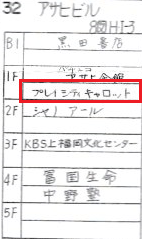 32 アサヒビル
B1 黒田書店
1F アサヒ会館
プレイシティキャロット
2F シャノアール
3F KBS上福岡文化センター
4F 富国生命
中野塾
5F